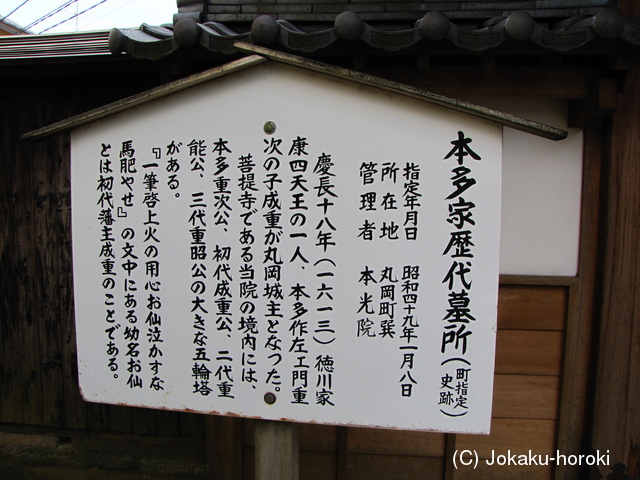 本多家歴代墓所（町指定史跡）
指定年月日　昭和四十九年一月八日
所在地　丸岡町巽
管理者　本光院
慶長十八年（一六一三）徳川家
康四天王の一人、本多作左エ門重
次の子成重が丸岡城主となった。
菩提寺である当院の境内には、
本多重次公、初代成重公、二代重
能公、三代重昭公の大きな五輪塔
がある。
『一筆啓上火の用心お仙泣かすな
馬肥やせ』の文中にある幼名お仙
とは初代藩主成重のことである。
(C) Jokaku-horoki